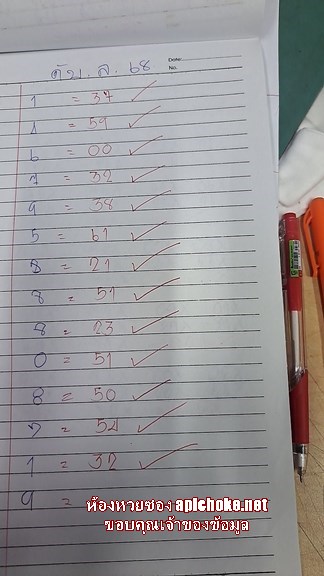 ดับ. ล. 68
Date:
No.
1 = 37 ✓
4 = 59 ✓
6 = 00 ✓
7 = 32 ✓
9 = 38 ✓
5 = 61 ✓
8 = 21 ✓
8 = 51 ✓
8 = 23 ✓
0 = 51 ✓
8 = 50 ✓
7 = 54 ✓
1 = 32 ✓
9 =
ห้องหวยซอง apichoke.net
ขอบคุณเจ้าของข้อมูล